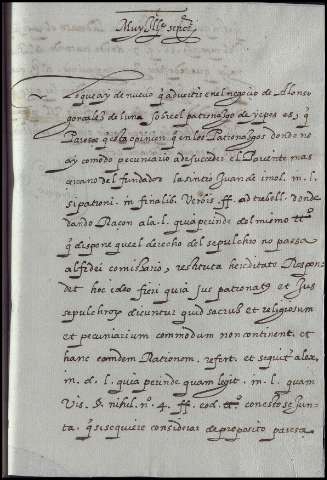 Muy Ille señor
Lo que ay de nuevo q̃ advertir en el negocio de Alonso
gonçalez de luna sobre el patronazgo de yepes es, q̃
Parece q̃ esta opinion q̃ en los Patronazgos donde no
ay comodo pecuniario a de suceder el Pariente mas
cercano del fundador la sintio Juan de imol. in. l.
si patroni. in finalib. Verbis. ff. ad trebell. donde
dando Racon a la. l. quia perinde del mismo tto
q̃ dispone que el derecho del sepulchro no passa
al fidei comissario, restituta hereditate Respon-
det hoc ideo fieri quia jus patronat9 et Jus
sepulchrorũ dicuntur quid sacrum et religiosum
et pecuniarium commodum non continent. et
hanc eamdem Rationem. refert. et sequit alex.
in. d. l. quia perinde quam legit. in. l. quam
Vis. §. nihil. nº. 4. ff. eod. tto. con esto se Jun-
ta. q̃ si se quiere considerar de proposito parece